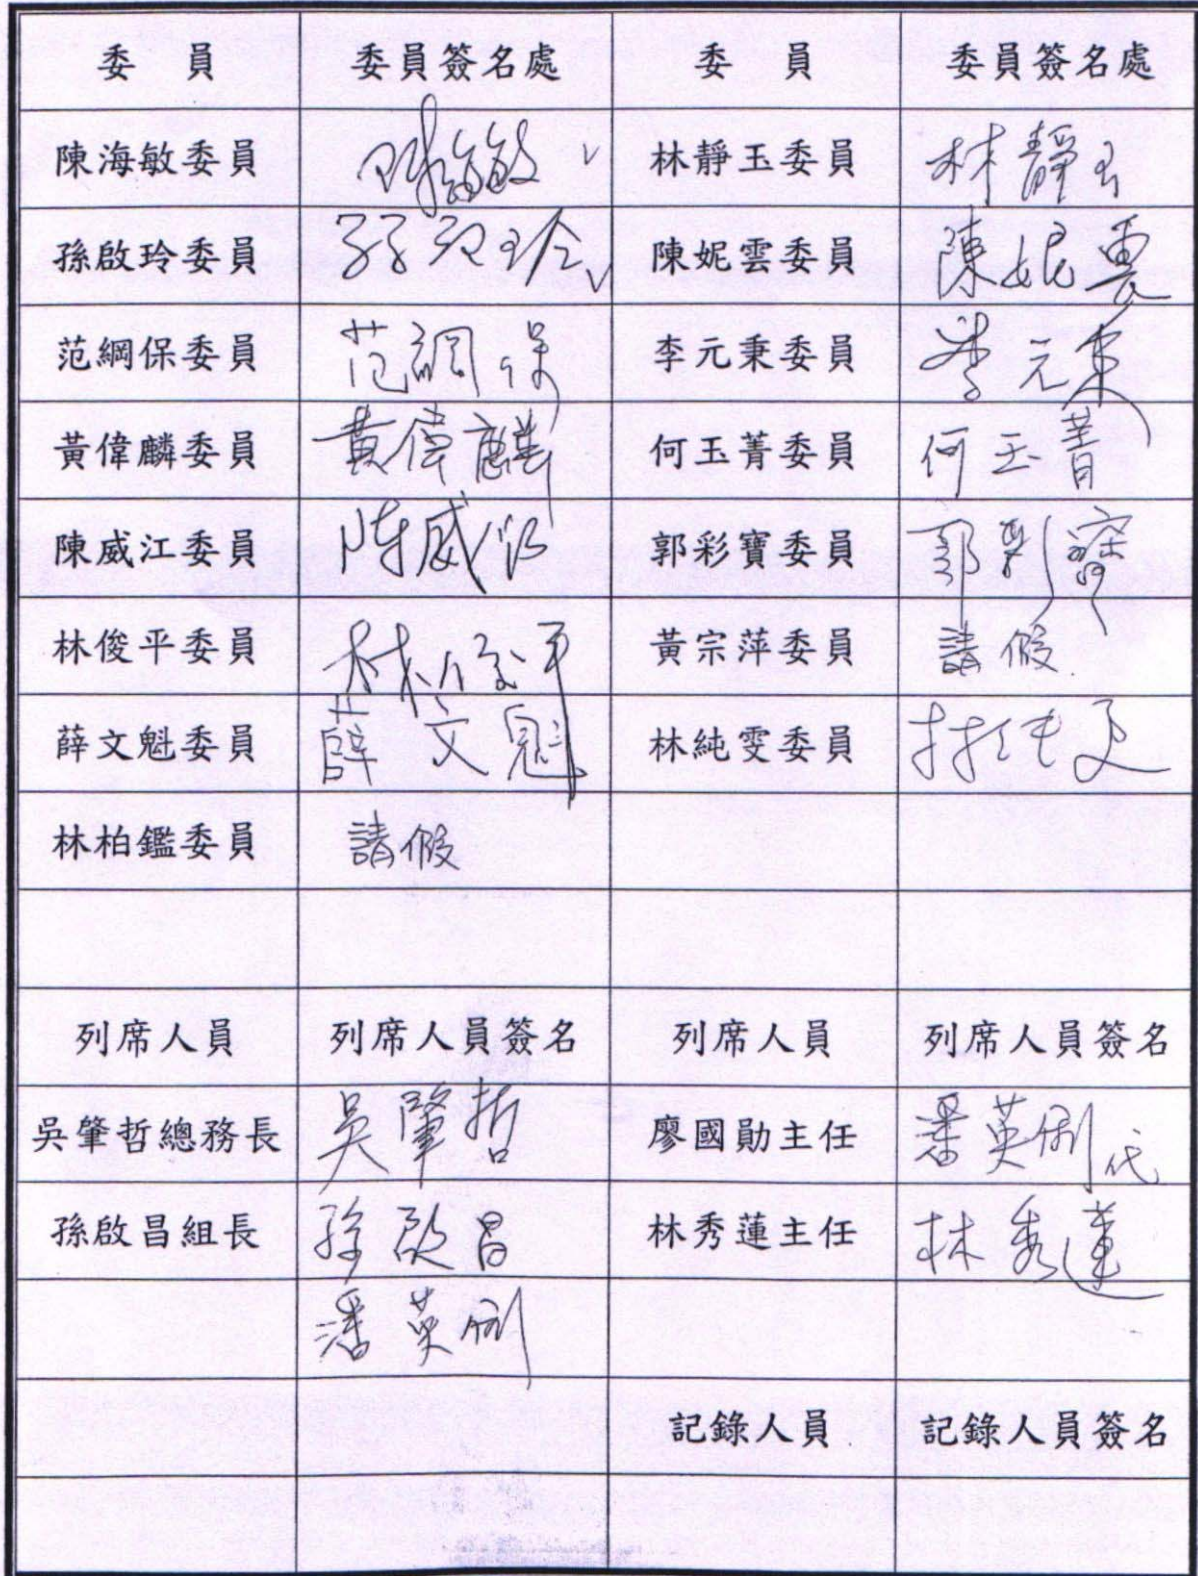 委員 委員簽名處 委員 委員簽名處
陳海敏委員 陳海敏 林靜玉委員 林靜玉
孫啟玲委員 孫啟玲 陳妮雲委員 陳妮雲
范綱保委員 范綱保 李元秉委員 李元秉
黃偉麟委員 黃偉麟 何玉菁委員 何玉菁
陳威江委員 陳威江 郭彩寶委員 郭彩寶
林俊平委員 林俊平 黃宗萍委員 請假
薛文魁委員 薛文魁 林純雯委員 林純雯
林柏鑑委員 請假
列席人員 列席人員簽名 列席人員 列席人員簽名
吳肇哲總務長 吳肇哲 廖國勛主任 潘英俐代
孫啟昌組長 孫啟昌 林秀蓮主任 林秀蓮
潘英俐
記錄人員 記錄人員簽名